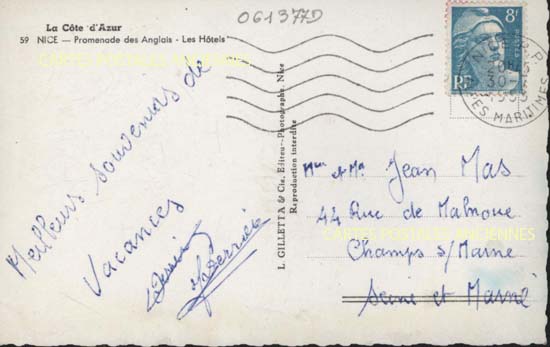 061377D
La Côte d'Azur
59 NICE — Promenade des Anglais - Les Hôtels
CARTES POSTALES ANCIENNES
8F
RF
ES MARITIMES
Meilleurs souvenirs de
Vacances
L. GILLETTA & Cie, Editeu-Photographe, Nice
Reproduction interdite
Mme et Mr Jean Mas
44 Rue de Malnoue
CARTES POSTALES ANCIENNES
Champs s/Marne
Seine et Marne